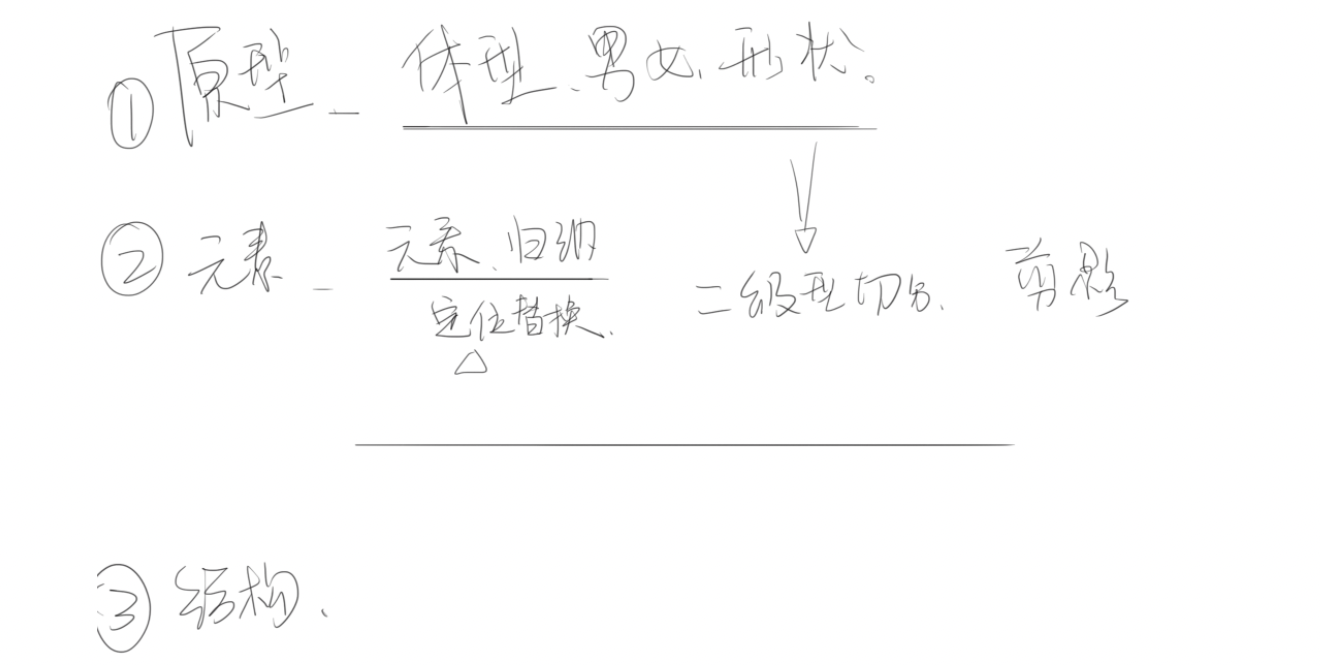 ① 原型 — 体型、男女、形状。
② 元素 — 元素、归纳
定位替换、
二级型切分、 剪影
③ 结构、